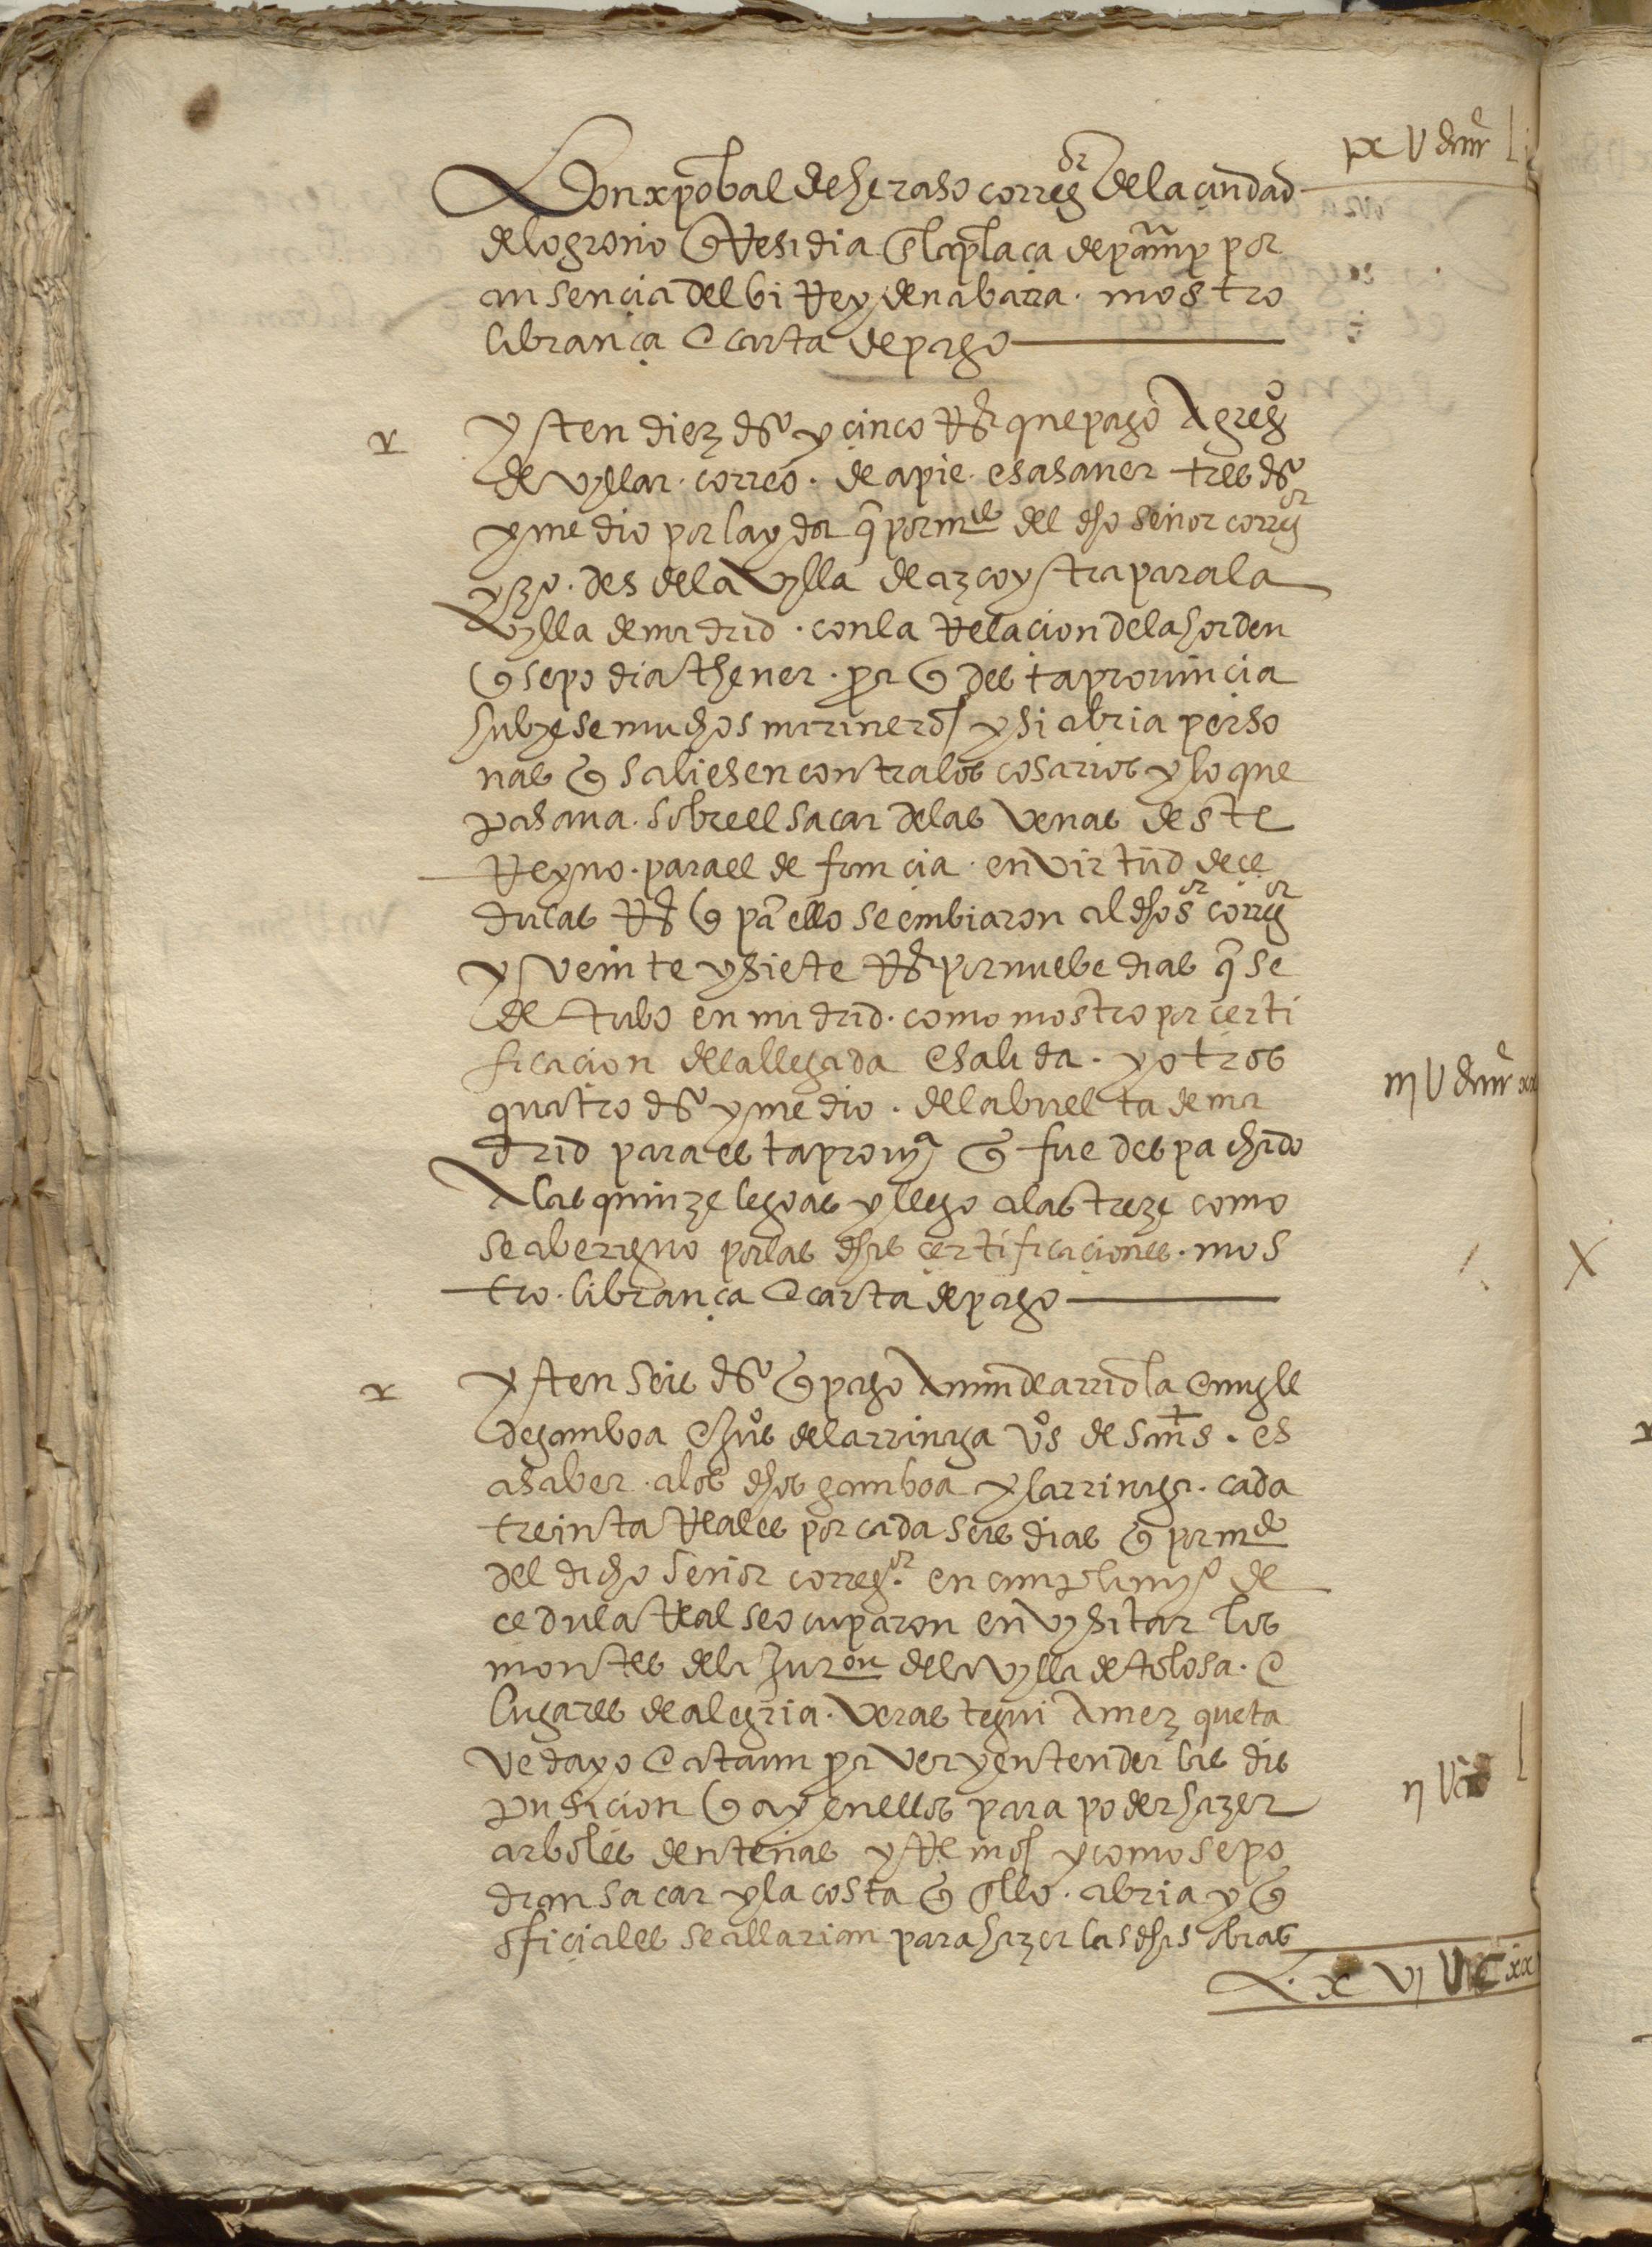 Don xpobal de heraso corregor de la ciudad
de logroño q Residia en la plaça de pamp por
ausencia del bi Rey de nabarra. mostro
librança e carta de pago
r
yten diez ds y cinco Rs que pago A grego
de vyllar. correo. de a pie. es a saver tres ds
y medio por la yda q por mdo del dho señor corregor
yzo. desde la Vylla de azcoytia para la
Vylla de madrid. con la Relacion de la horden
q se podia thener. pa q desta provinçia
hubyese muchos marineros y si abria perso
nas q saliesen contra los cosarios y lo que
pasava. sobre el sacar de las venas deste
Reyno. para el de françia. en virtud de çe
dulas Rs q pa ello se embiaron al dho sor corregor
y veinte y siete Rs por nuebe dias q se
detubo en madrid. como mostro por çerti
ficacion de la llegada e salida. y otros
quatro ds y medio. de la buelta de ma
drid para esta provya q fue despachado
A las quinze legoas y llego a las treze como
se aberiguo por las dhas çertificaçiones. mos
tro. librança e carta de pago
r
yten seis ds q pago A min de arriola e migll
de gamboa e hus de larrinaga vos de s ms. es
a saber. a los dhos gamboa y larrinaga. cada
treinta Reales por cada seis dias q por mdo
del dicho señor corregor. en cumplimyo de
cedula Real se ocuparon en vysitar los
montes de la Juron de la vylla de tolosa. e
lugares de alegria. Verastegui Amezqueta
Vedayo e ataun pa ver y entender las dis
pusicion q ay en ellos para poder hazer
arboles de ntenas y Remos y como se po
dran sacar y la costa q en ello. abria y q
ofiçiales se allarian para hazer las dhas obras